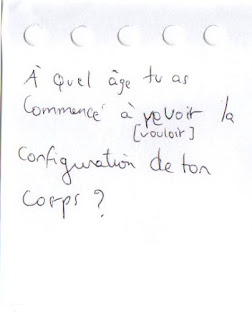 À quel âge tu as
commencé à pouvoir la
[vouloir]
configuration de ton
corps ?